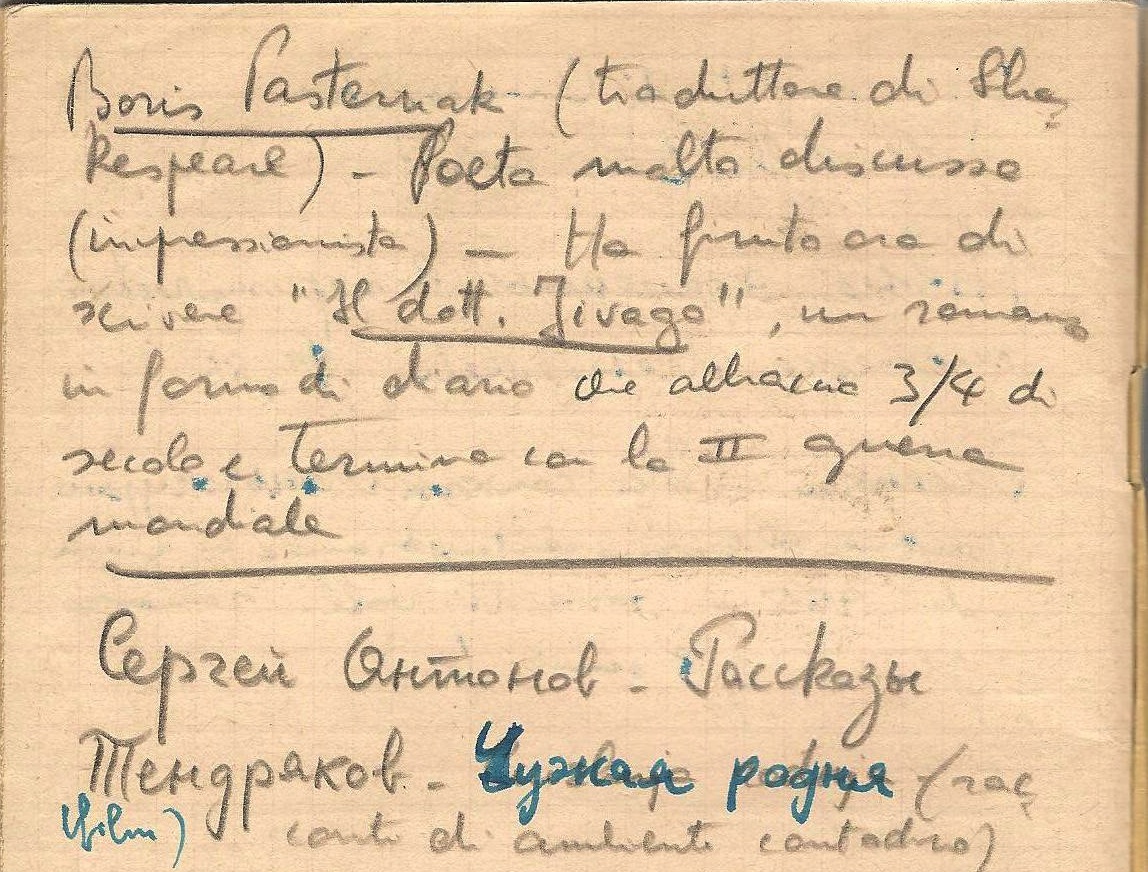 Boris Pasternak (traduttore di Sha=
kespeare) - Poeta molto discusso
(impressionista) - Ha finito ora di
scrivere "Il dott. Jivago", un romanzo
in forma di diario che abbraccia 3/4 di
secolo e termina con la II guerra
mondiale
Сергей Антонов - Рассказы
Тендряков - Чужая родня (rac=
film) conti di ambiente contadino)